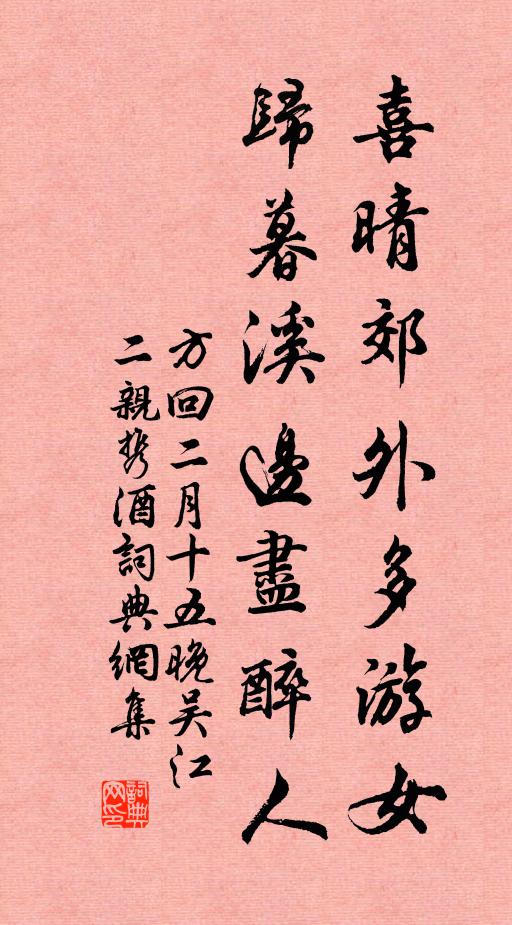 喜晴郊外多游女
歸暮溪邊盡醉人
方回二月十五晚吴江
二親携酒詞典網集
詞典
网印